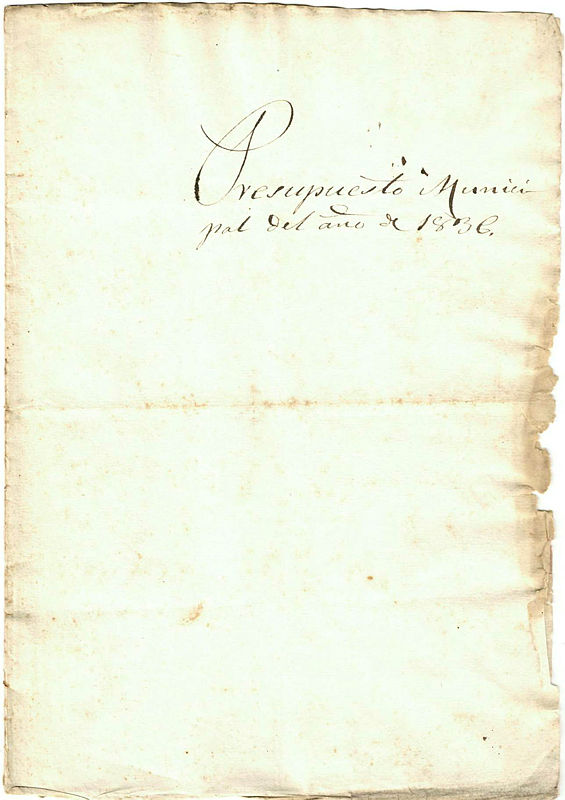 Presupuesto Munici-
pal del año de 1836.